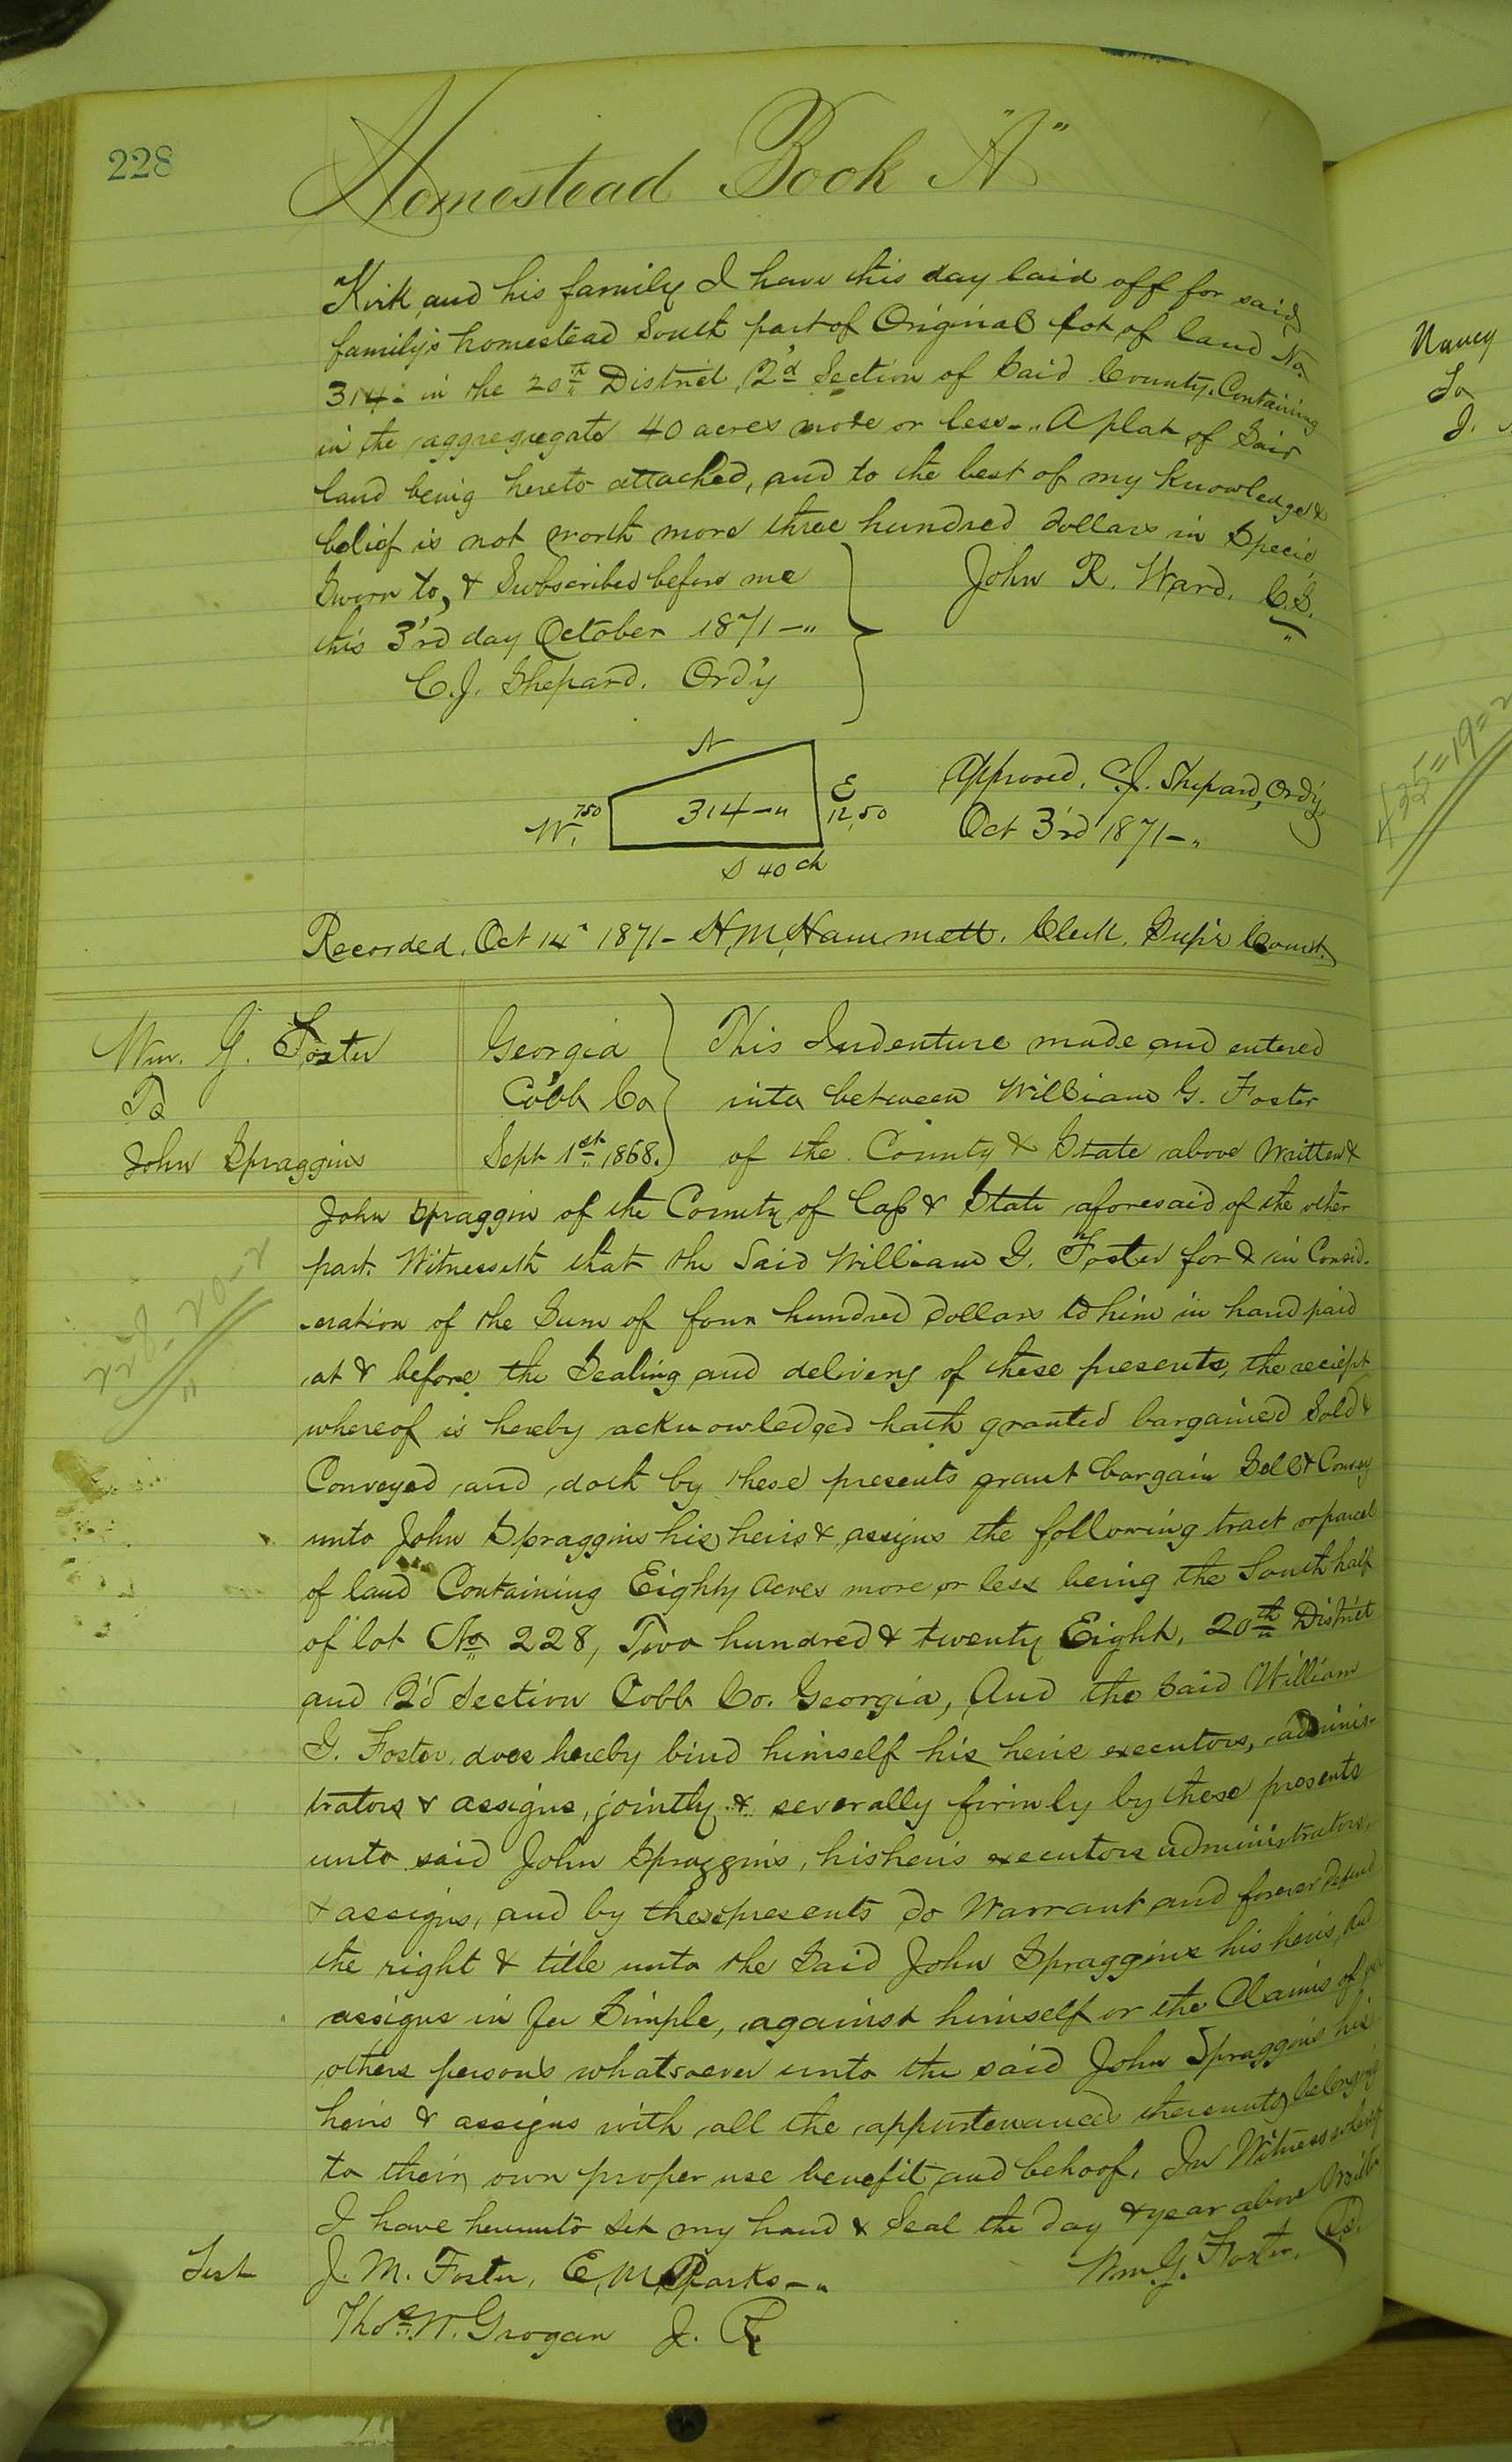 228
Homestead Book "A"
Kirk and his family I have this day laid off for said
family's homestead South part of Original lot of land No.
314 - in the 20th District, 2d Section of Said County, Containing
in the aggregregate 40 acres more or less - " A plat of Said
land being hereto attached, and to the best of my Knowledge &
belief is not worth more three hundred dollars in Specie
Sworn to, & Subscribed before me
John R. Ward. C.S.
this 3'rd day October 1871 - "
C.J. Shepard. Ord'y
N
W. 750
314 - "
E 12,50
S 40 ch
Approved, C.J. Shepard, Ord'y
Oct 3'rd 1871 - "
Recorded, Oct 14" 1871 - H.M. Hammett. Clerk. Sup'r Court.
Wm. G. Foster
To
John Spraggins
Georgia
Cobb Co
Sept 1st 1868.
This Indenture made and entered
into between William G. Foster
of the County & State above Written &
John Spraggin of the County of Cass & State aforesaid of the other
part. Witnesseth that the Said William G. Foster for & in Consid-
-eration of the Sum of four hundred dollars to him in hand paid
at & before the Sealing and delivery of these presents, the reciept
whereof is hereby acknowledged hath granted bargained Sold &
Conveyed and doth by these presents grant bargain Sell & Convey
unto John Spraggins his heirs & assigns the following tract or parcel
of land Containing Eighty Acres more or less being the South half
of lot No 228, Two hundred & twenty Eight, 20th District
and 2'd Section Cobb Co. Georgia, And the Said William
G. Foster, does hereby bind himself his heirs executors, adminis-
trators & assigns, jointly & severally firmly by these presents
unto said John Spraggins, his heirs executors administrators,
& assigns, and by these presents do Warrant and forever defend
the right & title unto the Said John Spraggins his heirs, and
assigns in fee Simple, against himself or the Claims of
others persons whatsoever unto the said John Spraggins his
heirs & assigns with all the appurtenances thereunto belonging
to their own proper use benefit and behoof. In Witness whereof
I have hereunto Set my hand & Seal the day & year above
Wm. G. Foster,
Test
J. M. Foster, E. M. Parks - "
Thos. W. Grogan J. P.
228 - 20 - 2
Nancy
To
J.
135 = 19 =